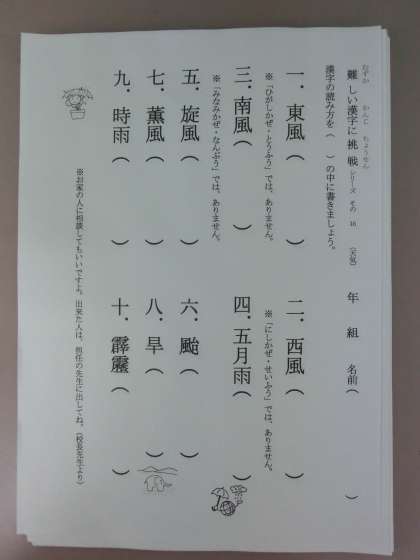 難しい漢字に挑戦シリーズ その 16 (天気) 年 組 名前( )
むずか かんじ ちょうせん
漢字の読み方を( )の中に書きましょう。
一．東風( ) 二．西風( )
※「ひがしかぜ・とうふう」では、ありません。 ※「にしかぜ・せいふう」では、ありません。
三．南風( ) 四．五月雨( )
※「みなみかぜ・なんぷう」では、ありません。
五．旋風( ) 六．颱( )
七．薫風( ) 八．旱( )
九．時雨( ) 十．霹靂( )
※お家の人に相談してもいいですよ。出来た人は、担任の先生に出してね。(校長先生より)